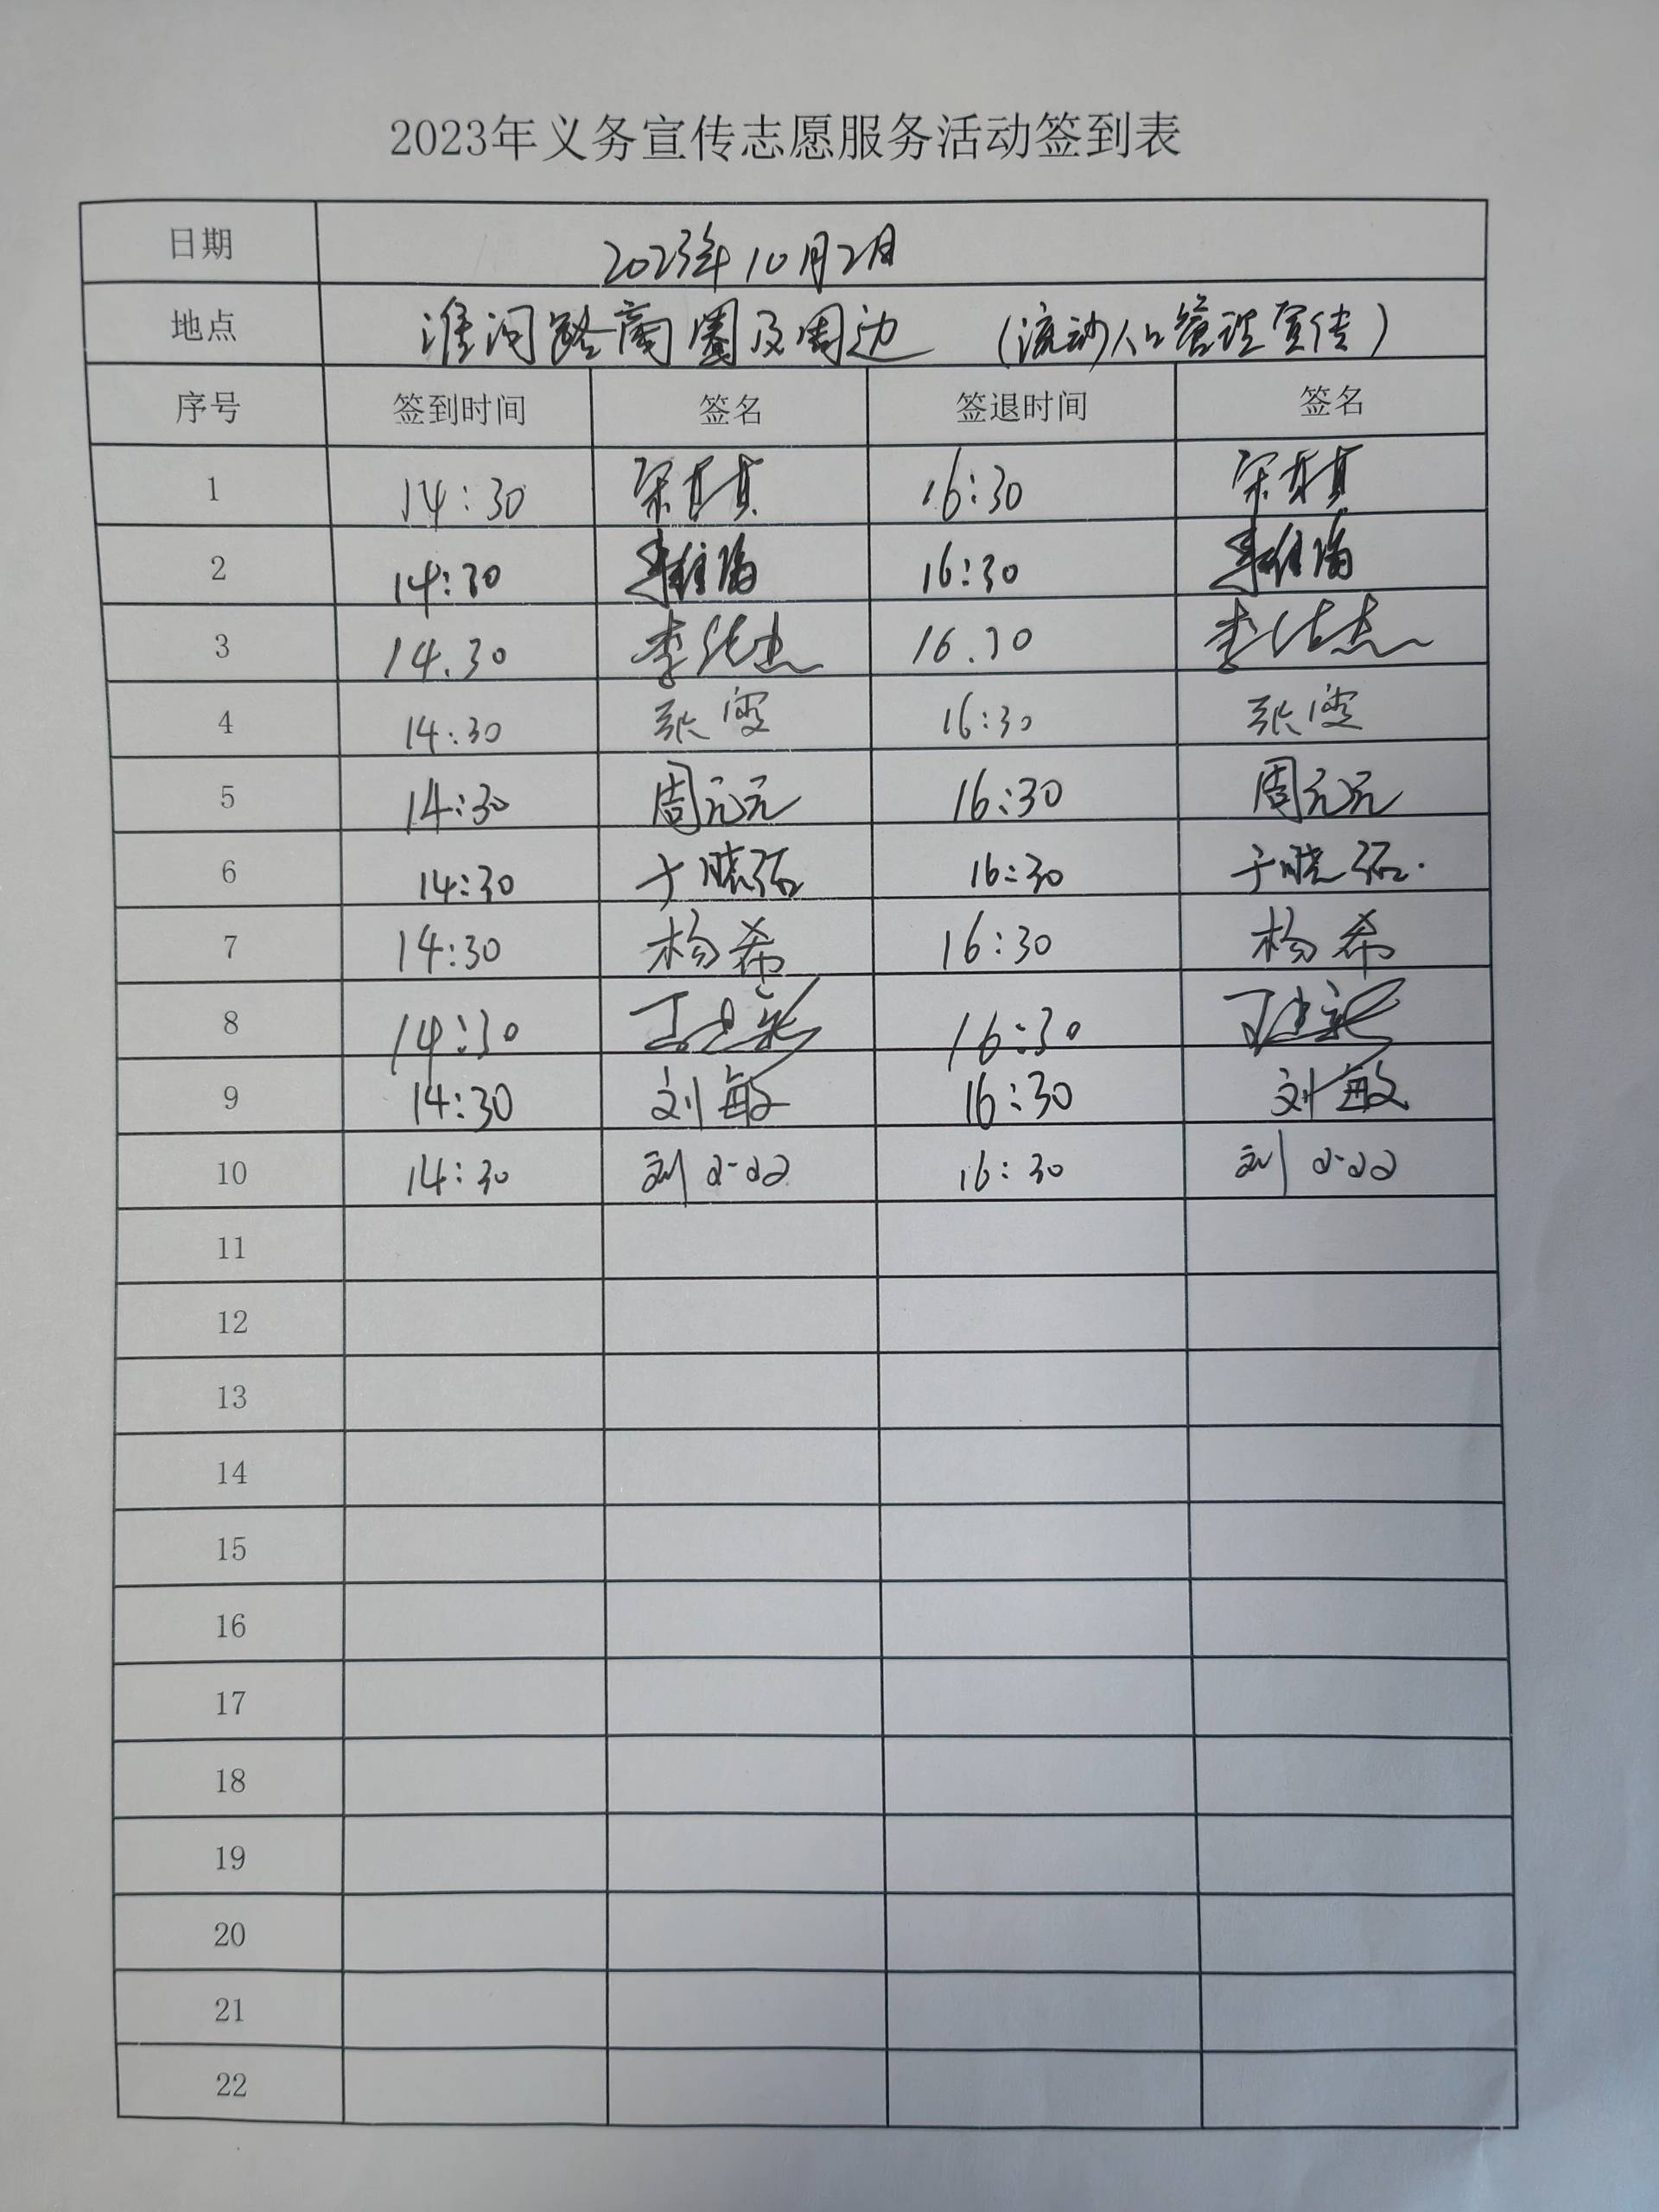 2023年义务宣传志愿服务活动签到表
日期 2023年10月2日
地点 淮河路商圈及周边 (流动人口管理宣传)
序号 签到时间 签名 签退时间 签名
1 14:30 16:30
2 14:30 16:30
3 14.30 李 16.30 李
4 14:30 张雯 16:30 张雯
5 14:30 周元元 16:30 周元元
6 14:30 于晓 16:30 于晓
7 14:30 杨希 16:30 杨希
8 14:30 丁建新 16:30 丁建新
9 14:30 刘敏 16:30 刘敏
10 14:30 刘 16:30 刘
11
12
13
14
15
16
17
18
19
20
21
22